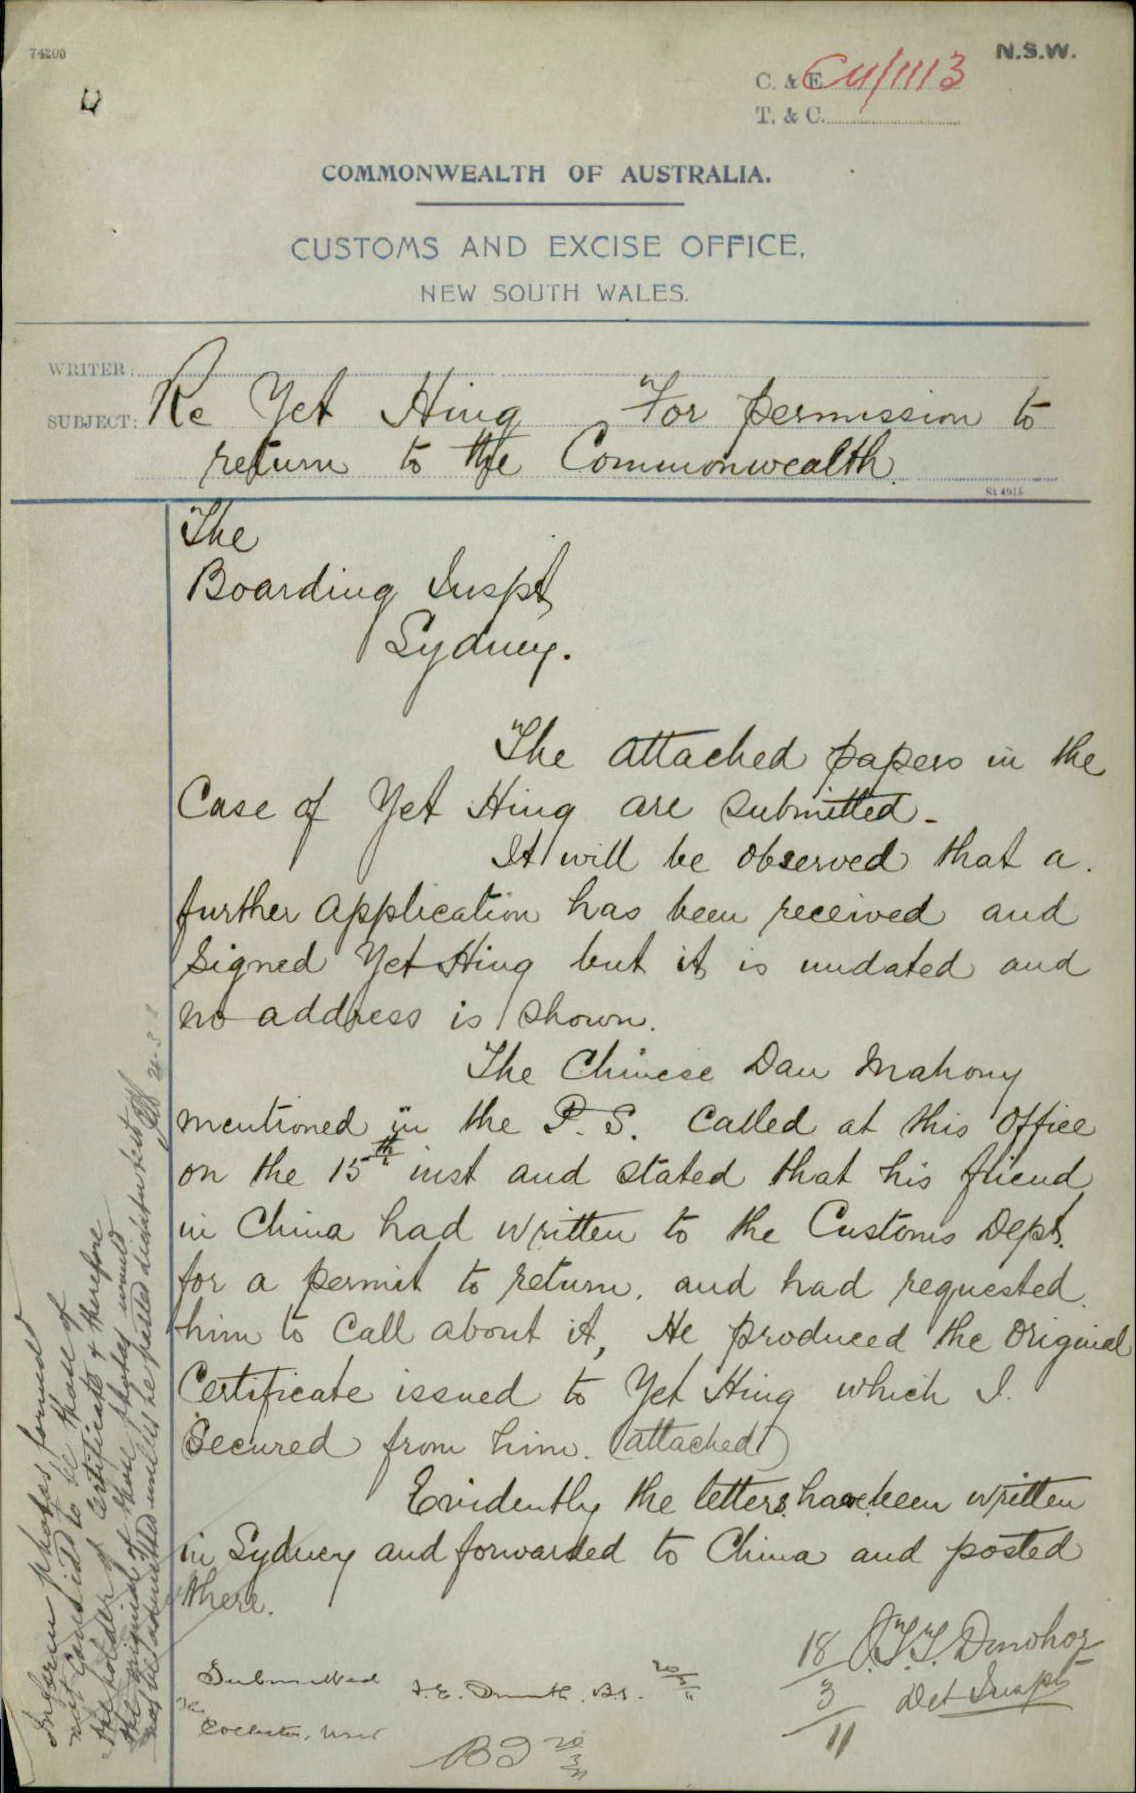 74200
N.S.W.
C. & E. C11/1113
T. & C.
COMMONWEALTH OF AUSTRALIA.
CUSTOMS AND EXCISE OFFICE,
NEW SOUTH WALES.
WRITER:
SUBJECT: Re Yet Hing For permission to
return to the Commonwealth.
The
Boarding Inspt
Sydney.
The attached papers in the
Case of Yet Hing are submitted.
It will be observed that a
further application has been received and
signed Yet Hing but it is undated and
no address is shown.
The Chinese Dan Mahony
mentioned in the P.S. called at this office
on the 15th inst and stated that his friend
in China had written to the Customs Dept.
for a permit to return, and had requested
him to call about it, He produced the original
Certificate issued to Yet Hing which I
secured from him. (attached)
Evidently the letters have been written
in Sydney and forwarded to China and posted
there.
18 Donohoe
3 Det Inspr
11
Submitted
The
Collector, NSW
20/3/11
20/3/11
Inform photos forwd
not considd to be those of
the holder of Certificate & therefore
the original of these photos would
not be admitted unless he passed dictation test